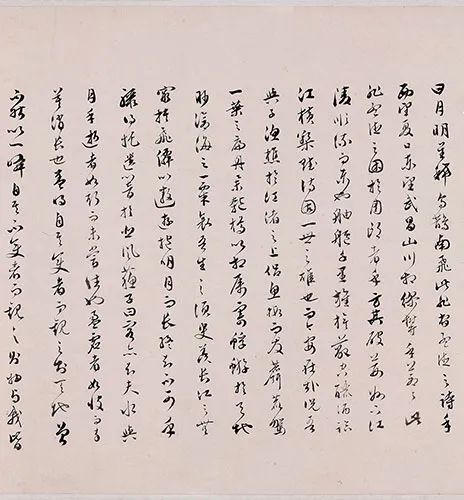 曰月明星稀烏鵲南飛此非曹孟德之詩乎
西望夏口東望武昌山川相繆鬱乎蒼蒼此
非孟德之困於周郎者乎方其破荊州下江
陵順流而東也舳艫千里旌旗蔽空釃酒臨
江橫槊賦詩固一世之雄也而今安在哉況吾
與子漁樵於江渚之上侶魚蝦而友麋鹿駕
一葉之扁舟舉匏樽以相屬寄蜉蝣於天地
渺滄海之一粟哀吾生之須臾羨長江之無
窮挾飛仙以遨遊抱明月而長終知不可乎
驟得托遺響於悲風蘇子曰客亦知夫水與
月乎逝者如斯而未嘗往也盈虛者如彼而卒
莫消長也蓋將自其變者而觀之則天地曾
不能以一瞬自其變者而觀之則物與我皆